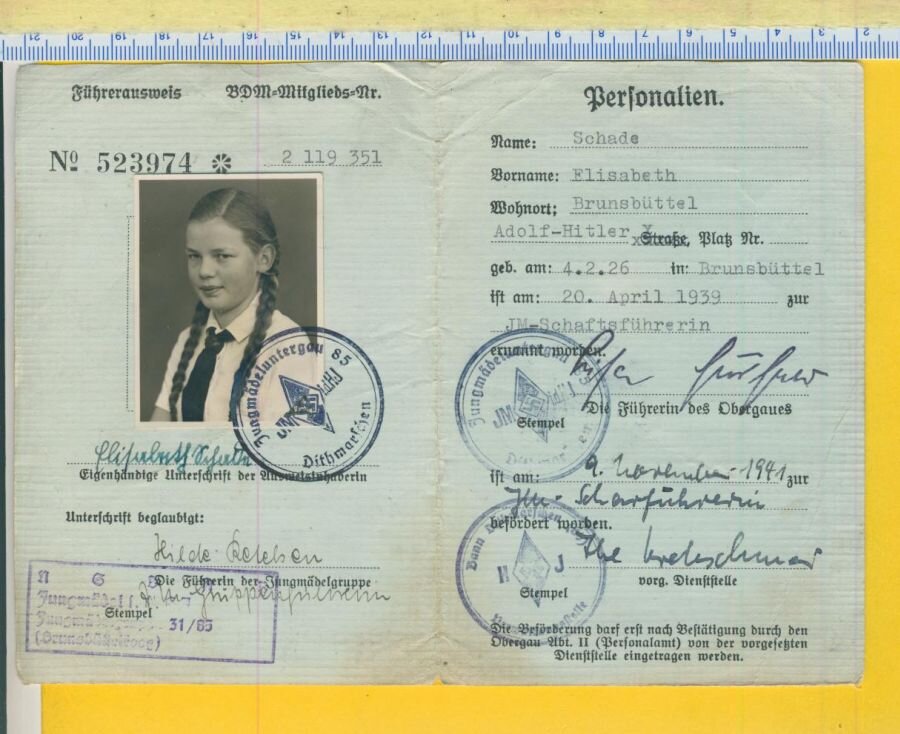 21 20 19 18 17 16 15 14 13 12 11 10 9 8 7 6 5 4 3 2
Führerausweis BDM-Mitglieds-Nr.
Nº 523974 2 119 351
Jungmädeluntergau 85
JM HJ
Dithmarschen
Elisabeth Schade
Eigenhändige Unterschrift der Ausweisinhaberin
Unterschrift beglaubigt:
Hilde
Die Führerin der Jungmädelgruppe
Stempel
N S
Jungmädel
31/85
Personalien.
Name: Schade
Vorname: Elisabeth
Wohnort: Brunsbüttel
Adolf-Hitler Straße, Platz Nr.
geb. am: 4.2.26 in: Brunsbüttel
ist am: 20. April 1939 zur
JM-Schaftsführerin
ernannt worden.
Die Führerin des Obergaues
Stempel
Jungmädeluntergau 85
JM HJ
ist am: 9. November 1941 zur
JM-Scharführerin
befördert worden.
vorg. Dienststelle
Stempel
Bann
H J
Die Beförderung darf erst nach Bestätigung durch den
Obergau Abt. II (Personalamt) von der vorgesetzten
Dienststelle eingetragen werden.